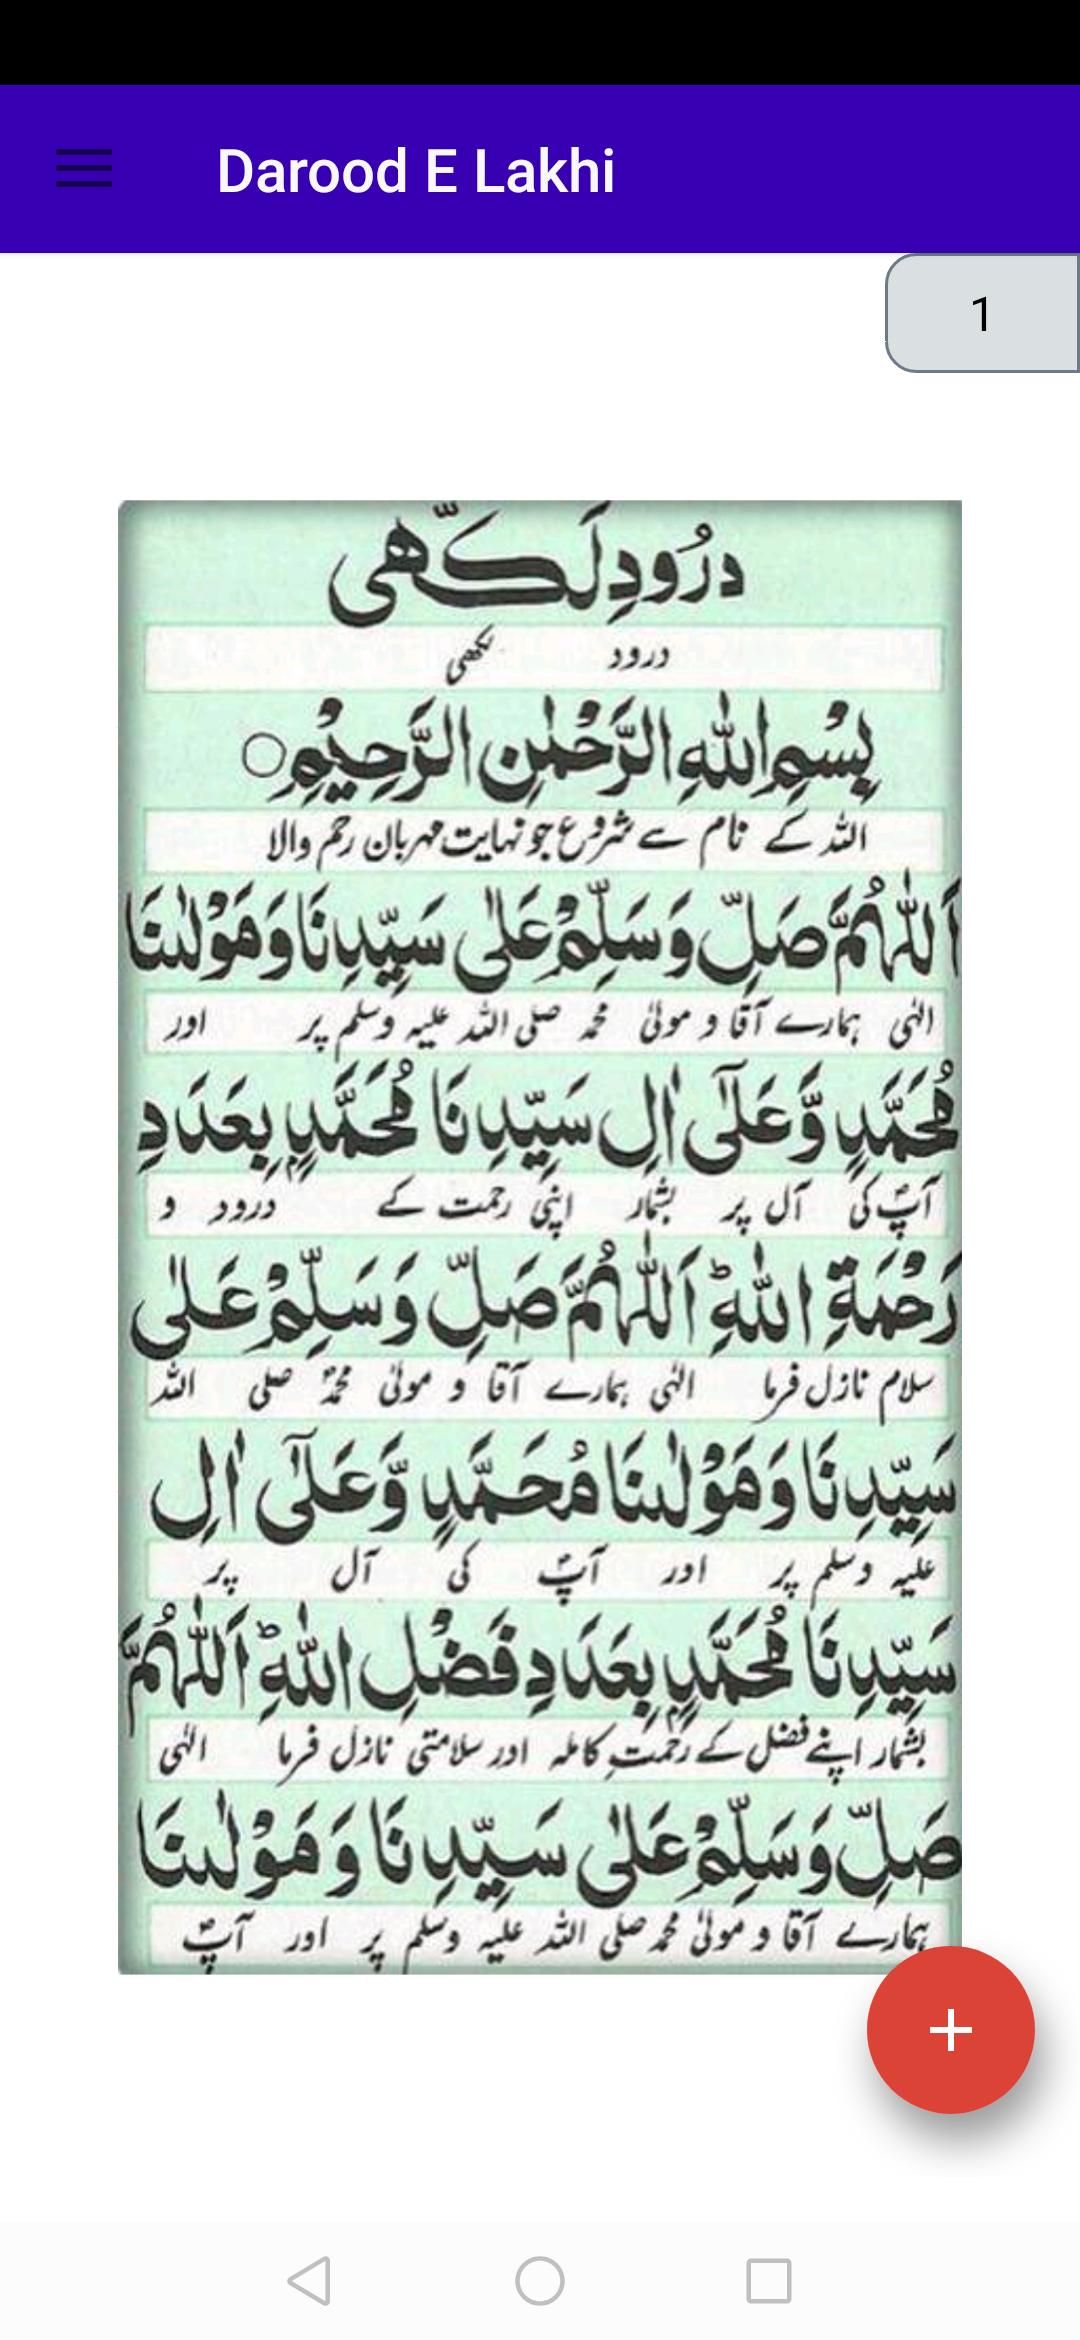 Darood E Lakhi
1
دُرُودِ لَکِّھی
درود لکھی
بِسْمِ اللّٰهِ الرَّحْمٰنِ الرَّحِيْمِ○
اللہ کے نام سے شروع جو نہایت مہربان رحم والا
اَللّٰهُمَّ صَلِّ وَسَلِّمْ عَلٰى سَيِّدِنَا وَمَوْلٰىنَا
الٰہی ہمارے آقا و مولیٰ محمد صلی اللہ علیہ وسلم پر اور
مُحَمَّدٍ وَّعَلٰٓى اٰلِ سَيِّدِنَا مُحَمَّدٍۭ بِعَدَدِ
آپؐ کی آل پر بشمار اپنی رحمت کے درود و
رَحْمَةِ اللّٰهِؕ اَللّٰهُمَّ صَلِّ وَسَلِّمْ عَلٰى
سلام نازل فرما الٰہی ہمارے آقا و مولیٰ محمدؐ صلی اللہ
سَيِّدِنَا وَمَوْلٰىنَا مُحَمَّدٍ وَّعَلٰٓى اٰلِ
علیہ وسلم پر اور آپؐ کی آل پر
سَيِّدِنَا مُحَمَّدٍۭ بِعَدَدِ فَضْلِ اللّٰهِؕ اَللّٰهُمَّ
بشمار اپنے فضل کے رحمتِ کاملہ اور سلامتی نازل فرما الٰہی
صَلِّ وَسَلِّمْ عَلٰى سَيِّدِنَا وَمَوْلٰىنَا
ہمارے آقا و مولیٰ محمد صلی اللہ علیہ وسلم پر اور آپؐ